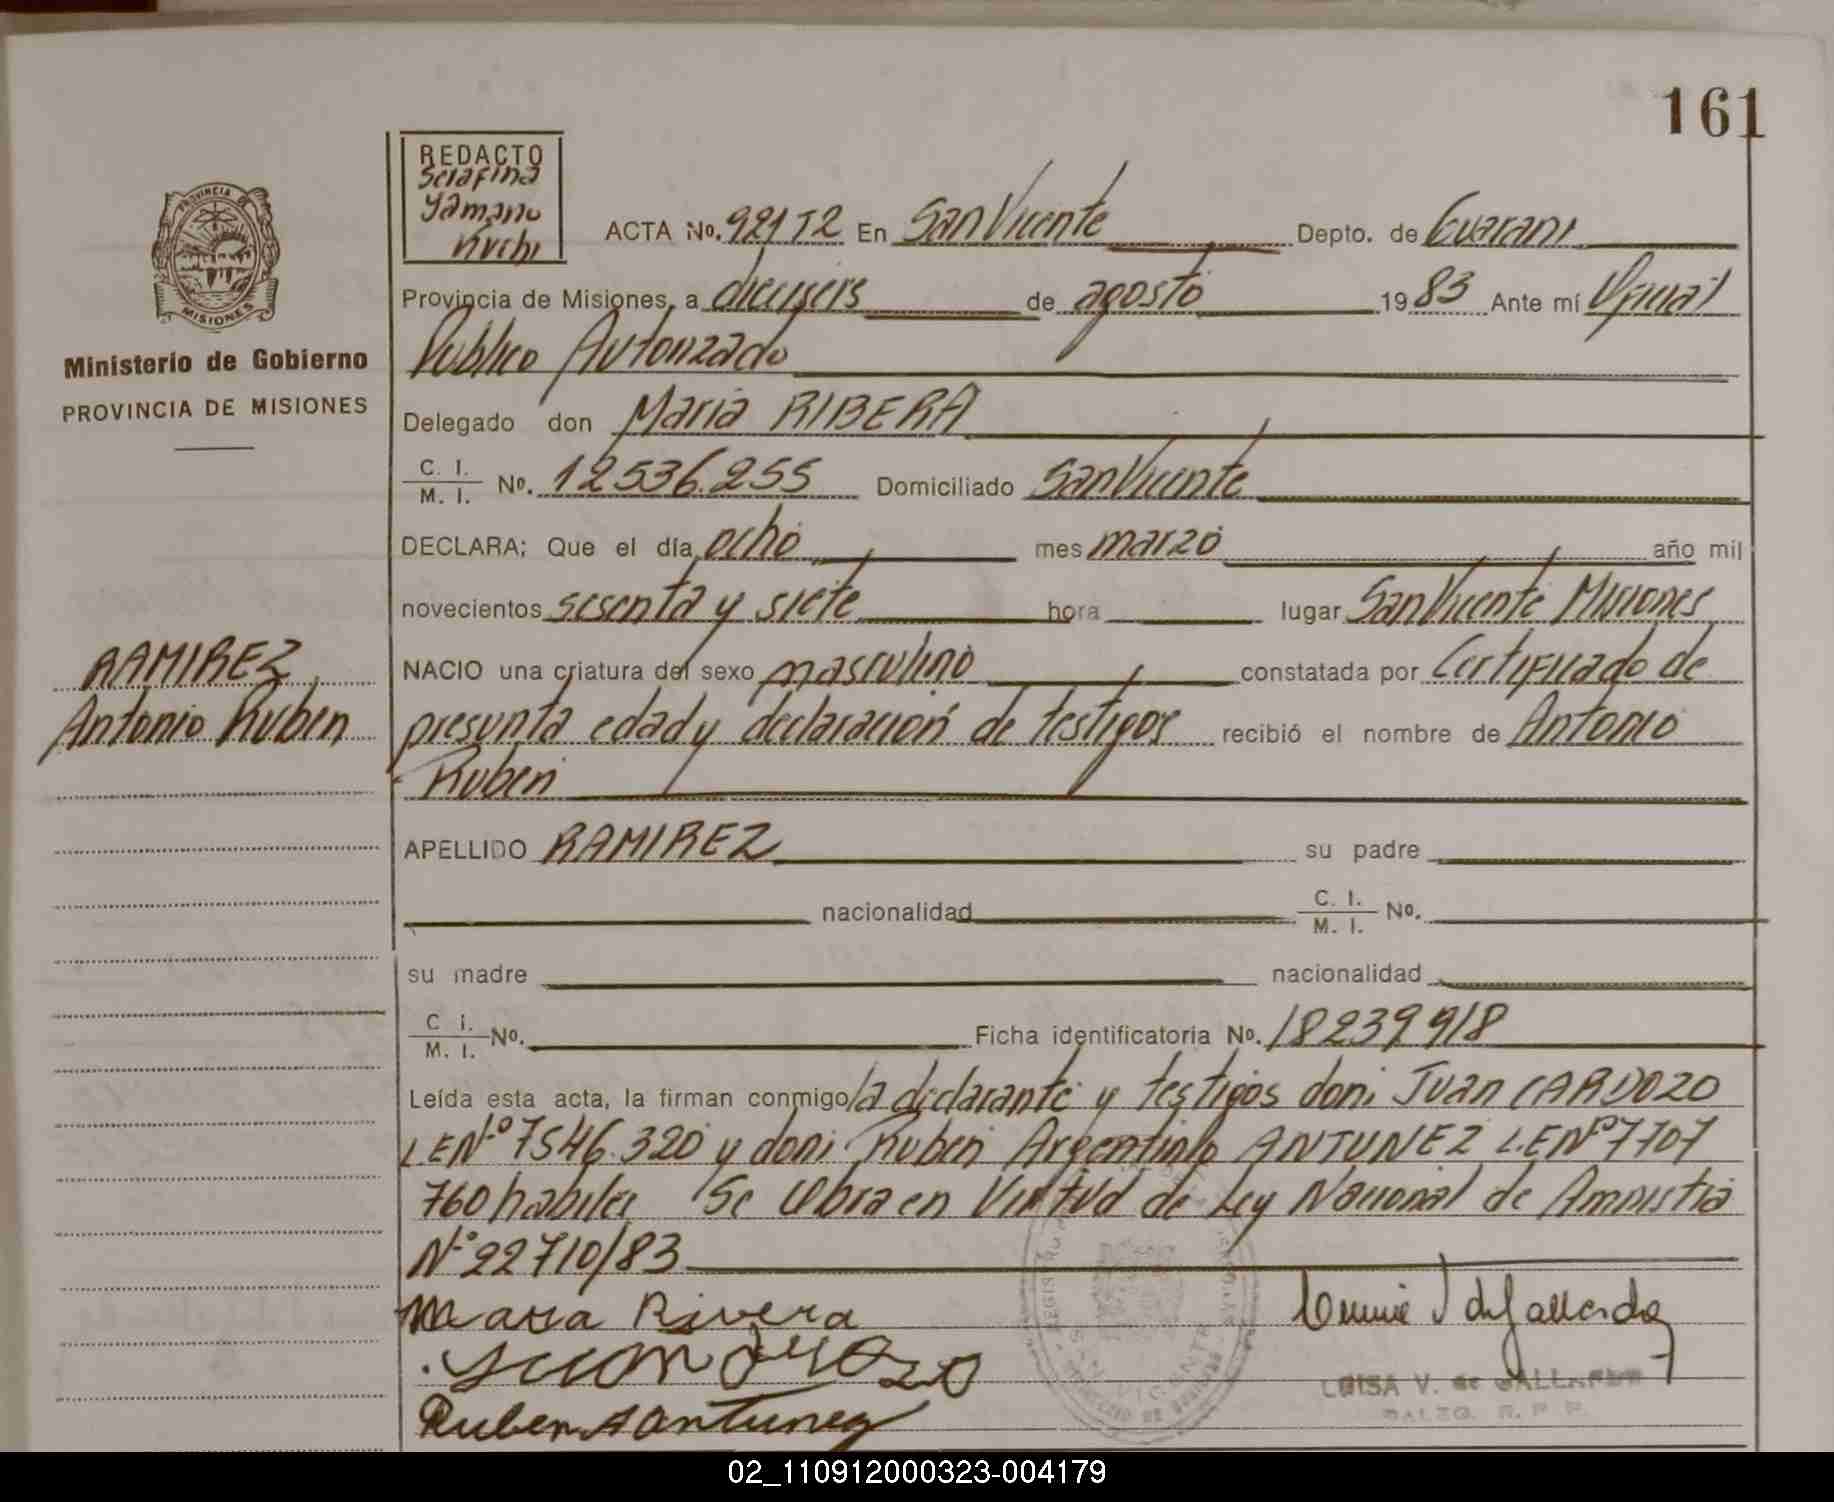 161
REDACTO
Serafina
Yamano
Kuchi
ACTA No. 921 T2 En San Vicente Depto. de Guarani
PROVINCIA DE MISIONES
Provincia de Misiones, a dieciseis de agosto 1983 Ante mí Oficial
Publico Autorizado
Ministerio de Gobierno
PROVINCIA DE MISIONES
Delegado don Maria RIBERA
C. I.
M. I. No. 12536.255 Domiciliado San Vicente
DECLARA: Que el día ocho mes marzo año mil
novecientos sesenta y siete hora lugar San Vicente Misiones
RAMIREZ
Antonio Ruben
NACIO una criatura del sexo masculino constatada por Certificado de
presunta edad y declaracion de testigos recibió el nombre de Antonio
Ruben
APELLIDO RAMIREZ su padre
nacionalidad C. I.
M. I. No.
su madre nacionalidad
C I.
M. I. No. Ficha identificatoria No. 18239918
Leída esta acta, la firman conmigo la declarante y testigos don: Juan CARDOZO
L.E Nº 7546.320 y don: Ruben Argentino ANTUNEZ L.E Nº 7707
760 habiles Se labra en Virtud de Ley Nacional de Amnistia
Nº 22710/83
Maria Rivera
Ruben A antunez
LUISA V. de GALLARDO
02_110912000323-004179